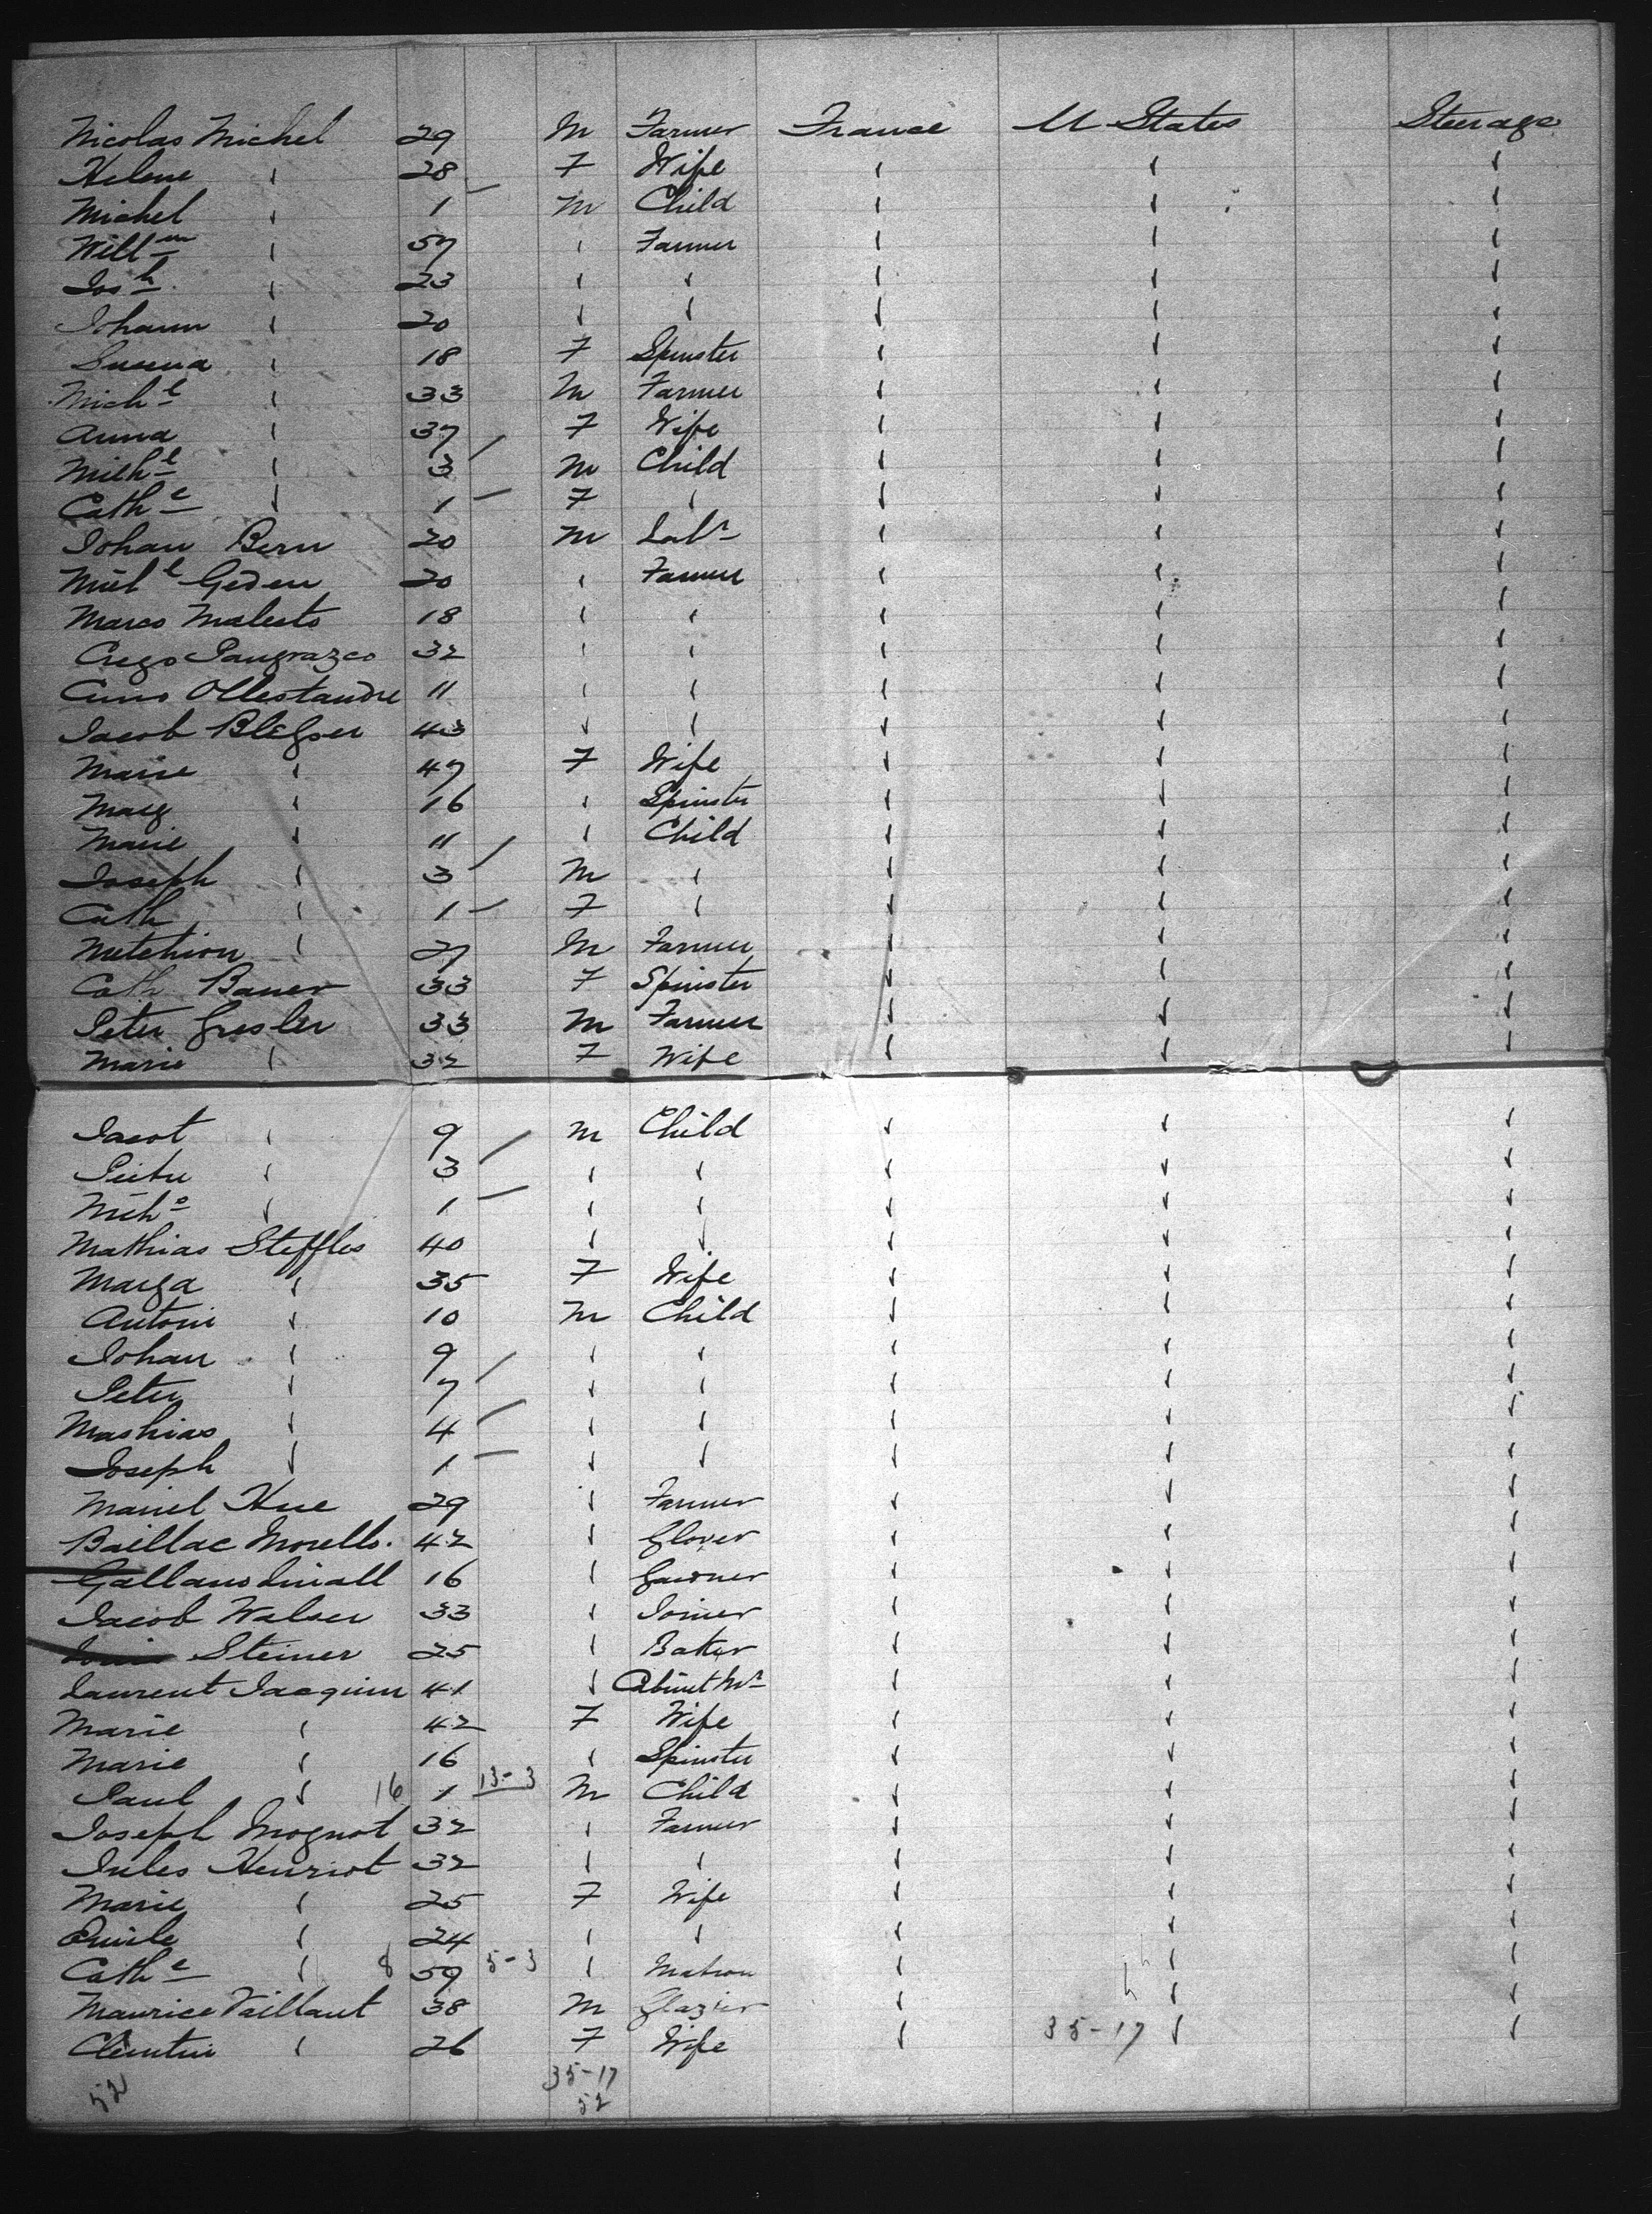 Nicolas Michel 29 M Farmer France U States Steerage
Helene " 28 F Wife " " "
Michel " 1 M Child " " "
Willm " 57 " Farmer " " "
Josh " 23 " " " " "
Johann " 20 " " " " "
" 18 F Spinster " " "
Michl " 33 M Farmer " " "
Anna " 37 F Wife " " "
Michl " 3 M Child " " "
Cathe " 1 F " " " "
Johan Bern 20 M Labr " " "
Michl Geden 20 " Farmer " " "
Marco Malesto 18 " " " " "
Crego Pangrazco 32 " " " " "
11 " " " " "
Jacob 43 " " " " "
Marie " 47 F Wife " " "
Marg " 16 " Spinster " " "
Marie " 11 " Child " " "
Joseph " 3 M " " " "
Cath " 1 F " " " "
" 27 M Farmer " " "
Cath Bauer 33 F Spinster " " "
Peter Gresler 33 M Farmer " " "
Marie " 32 F Wife " " "
Jacot " 9 M Child " " "
" 3 " " " " "
" 1 " " " " "
Mathias Steffles 40 " " " " "
Marga " 35 F Wife " " "
Antoni " 10 M Child " " "
Johan " 9 " " " " "
Peter " 7 " " " " "
Mashias " 4 " " " " "
Joseph " 1 " " " " "
Hue 29 " Farmer " " "
Baillac Morello. 42 " Glover " " "
16 " " " "
Jacob Walser 33 " Joiner " " "
Steiner 25 " Baker " " "
Laurent Jacquin 41 " Cabinet Mr " " "
Marie " 42 F Wife " " "
Marie " 16 " Spinster " " "
Paul " 16 1 13-3 M Child " " "
Joseph Mognot 32 " Farmer " " "
Jules Henriot 32 " " " " "
Marie " 25 F Wife " " "
Emile " 24 " " " " "
Cathe " 8 59 5-3 " Matron " " "
Maurice Vaillant 38 M Glazier " " "
Clemtin " 26 F Wife " 35-17 " "
35-17
52 52